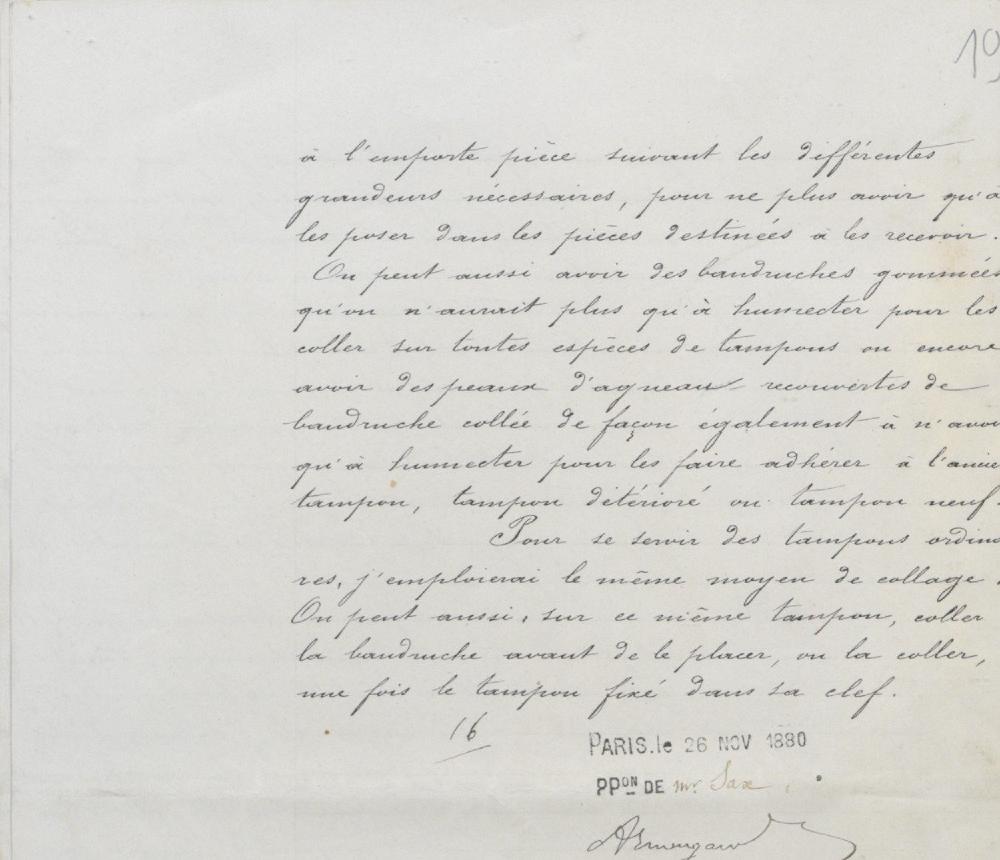 19
à l'emporte pièce suivant les différentes
grandeurs nécessaires, pour ne plus avoir qu'à
les poser dans les pièces destinées à les recevoir.
On peut aussi avoir des baudruches gommées
qu'on n'aurait plus qu'à humecter pour les
coller sur toutes espèces de tampons ou encore
avoir des peaux d'agneau recouvertes de
baudruche collée de façon également à n'avoir
qu'à humecter pour les faire adhérer à l'ancien
tampon, tampon détérioré ou tampon neuf.
Pour se servir des tampons ordinai
res, j'emploierai le même moyen de collage.
On peut aussi, sur ce même tampon, coller
la baudruche avant de le placer, ou la coller,
une fois le tampon fixé dans sa clef.
16
PARIS. le 26 NOV 1880
PPON DE mr. Sax
Armengaud